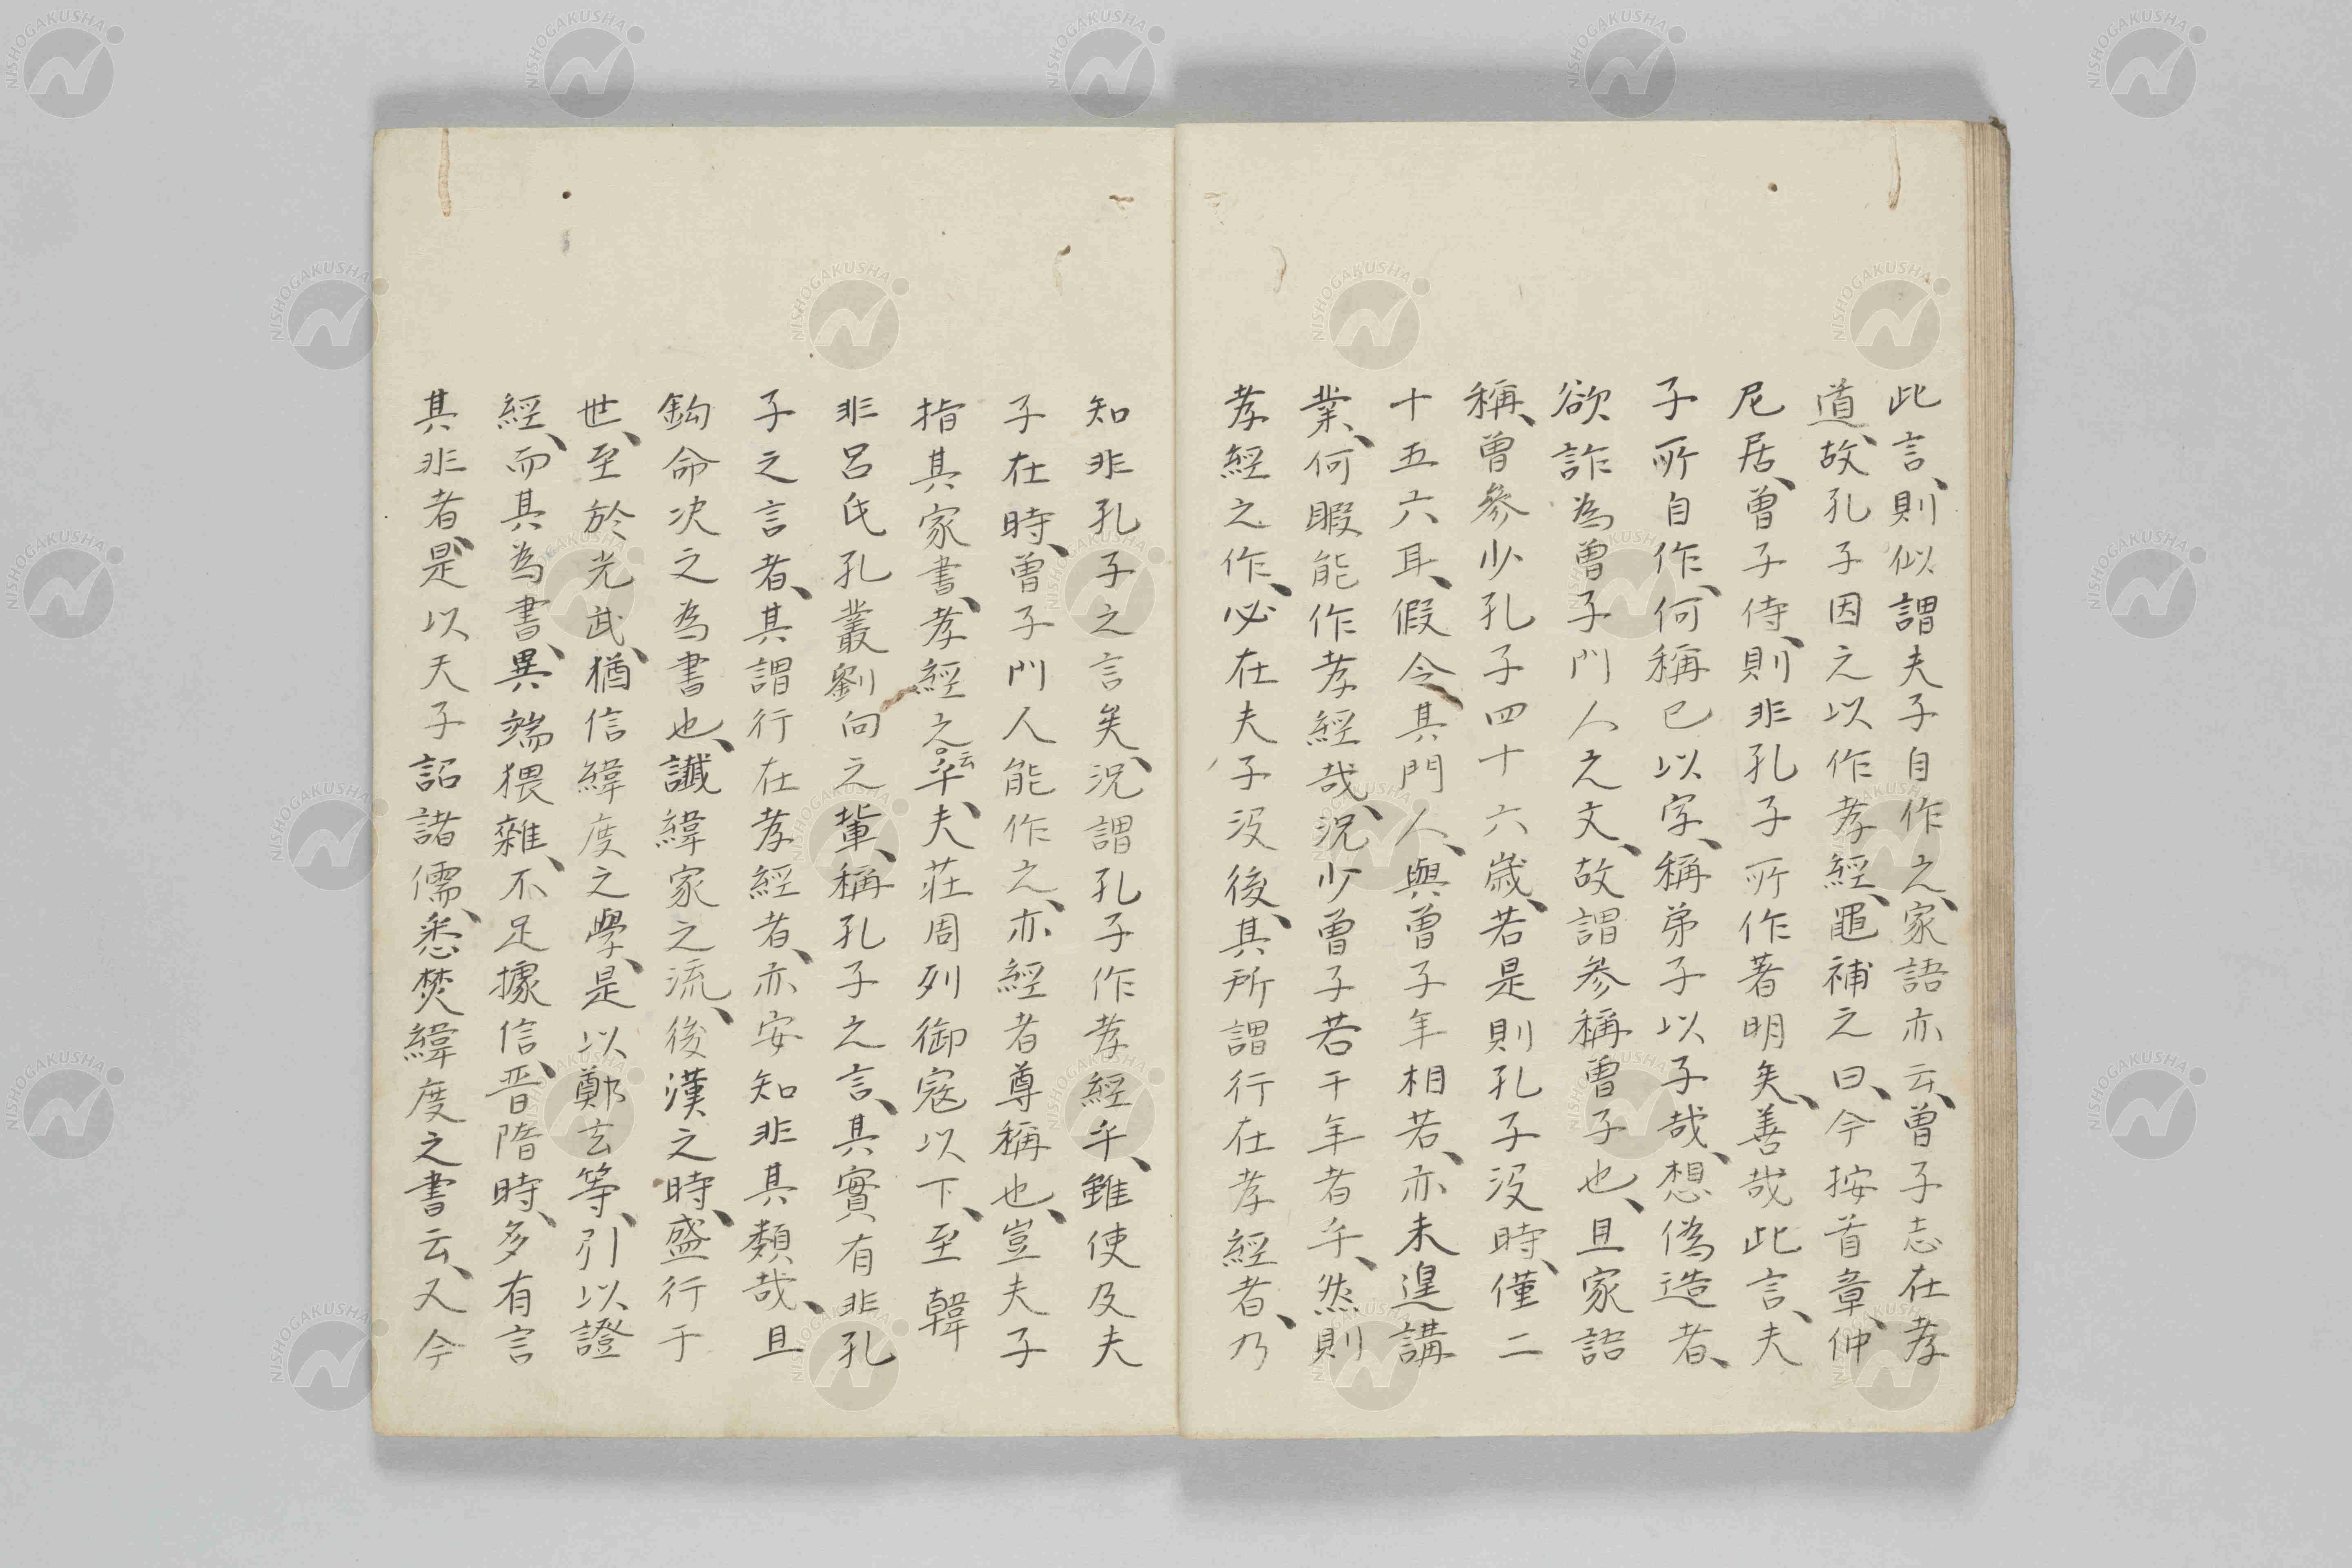 此言、則似謂夫子自作之、家語亦云、曽子志在孝
道、故孔子因之以作孝經、黽補之曰、今按首章、仲
尼居、曽子侍、則非孔子所作著明矣、善哉此言、夫
子所自作、何稱已以字、稱弟子以子哉、想偽造者、
欲詐為曽子門人之文、故謂参稱曽子也、且家語
稱、曽參少孔子四十六歳、若是則孔子没時、僅二
十五六耳、假令其門人、與曽子年相若、亦未遑講
業、何暇能作孝經哉、況少曽子若干年者乎、然則
孝經之作、必在夫子没後、其所謂行在孝經者、乃
知非孔子之言矣、況謂孔子作孝經乎、雖使及夫
子在時、曽子門人能作之、亦經者尊稱也、豈夫子
指其家書、孝經之云乎、夫莊周列御寇以下、至韓
非呂氏孔叢劉向之輩、稱孔子之言、其實有非孔
子之言者、其謂行在孝經者、亦安知非其類哉、且
鈎命决之為書也、讖緯家之流、後漢之時、盛行于
世、至於光武、猶信緯度之學、是以鄭玄等、引以證
經、而其為書、異端猥雜、不足據信、晋隋時、多有言
其非者、是以天子詔諸儒、悉焚緯度之書云、又今
NISHOGAKUSHA